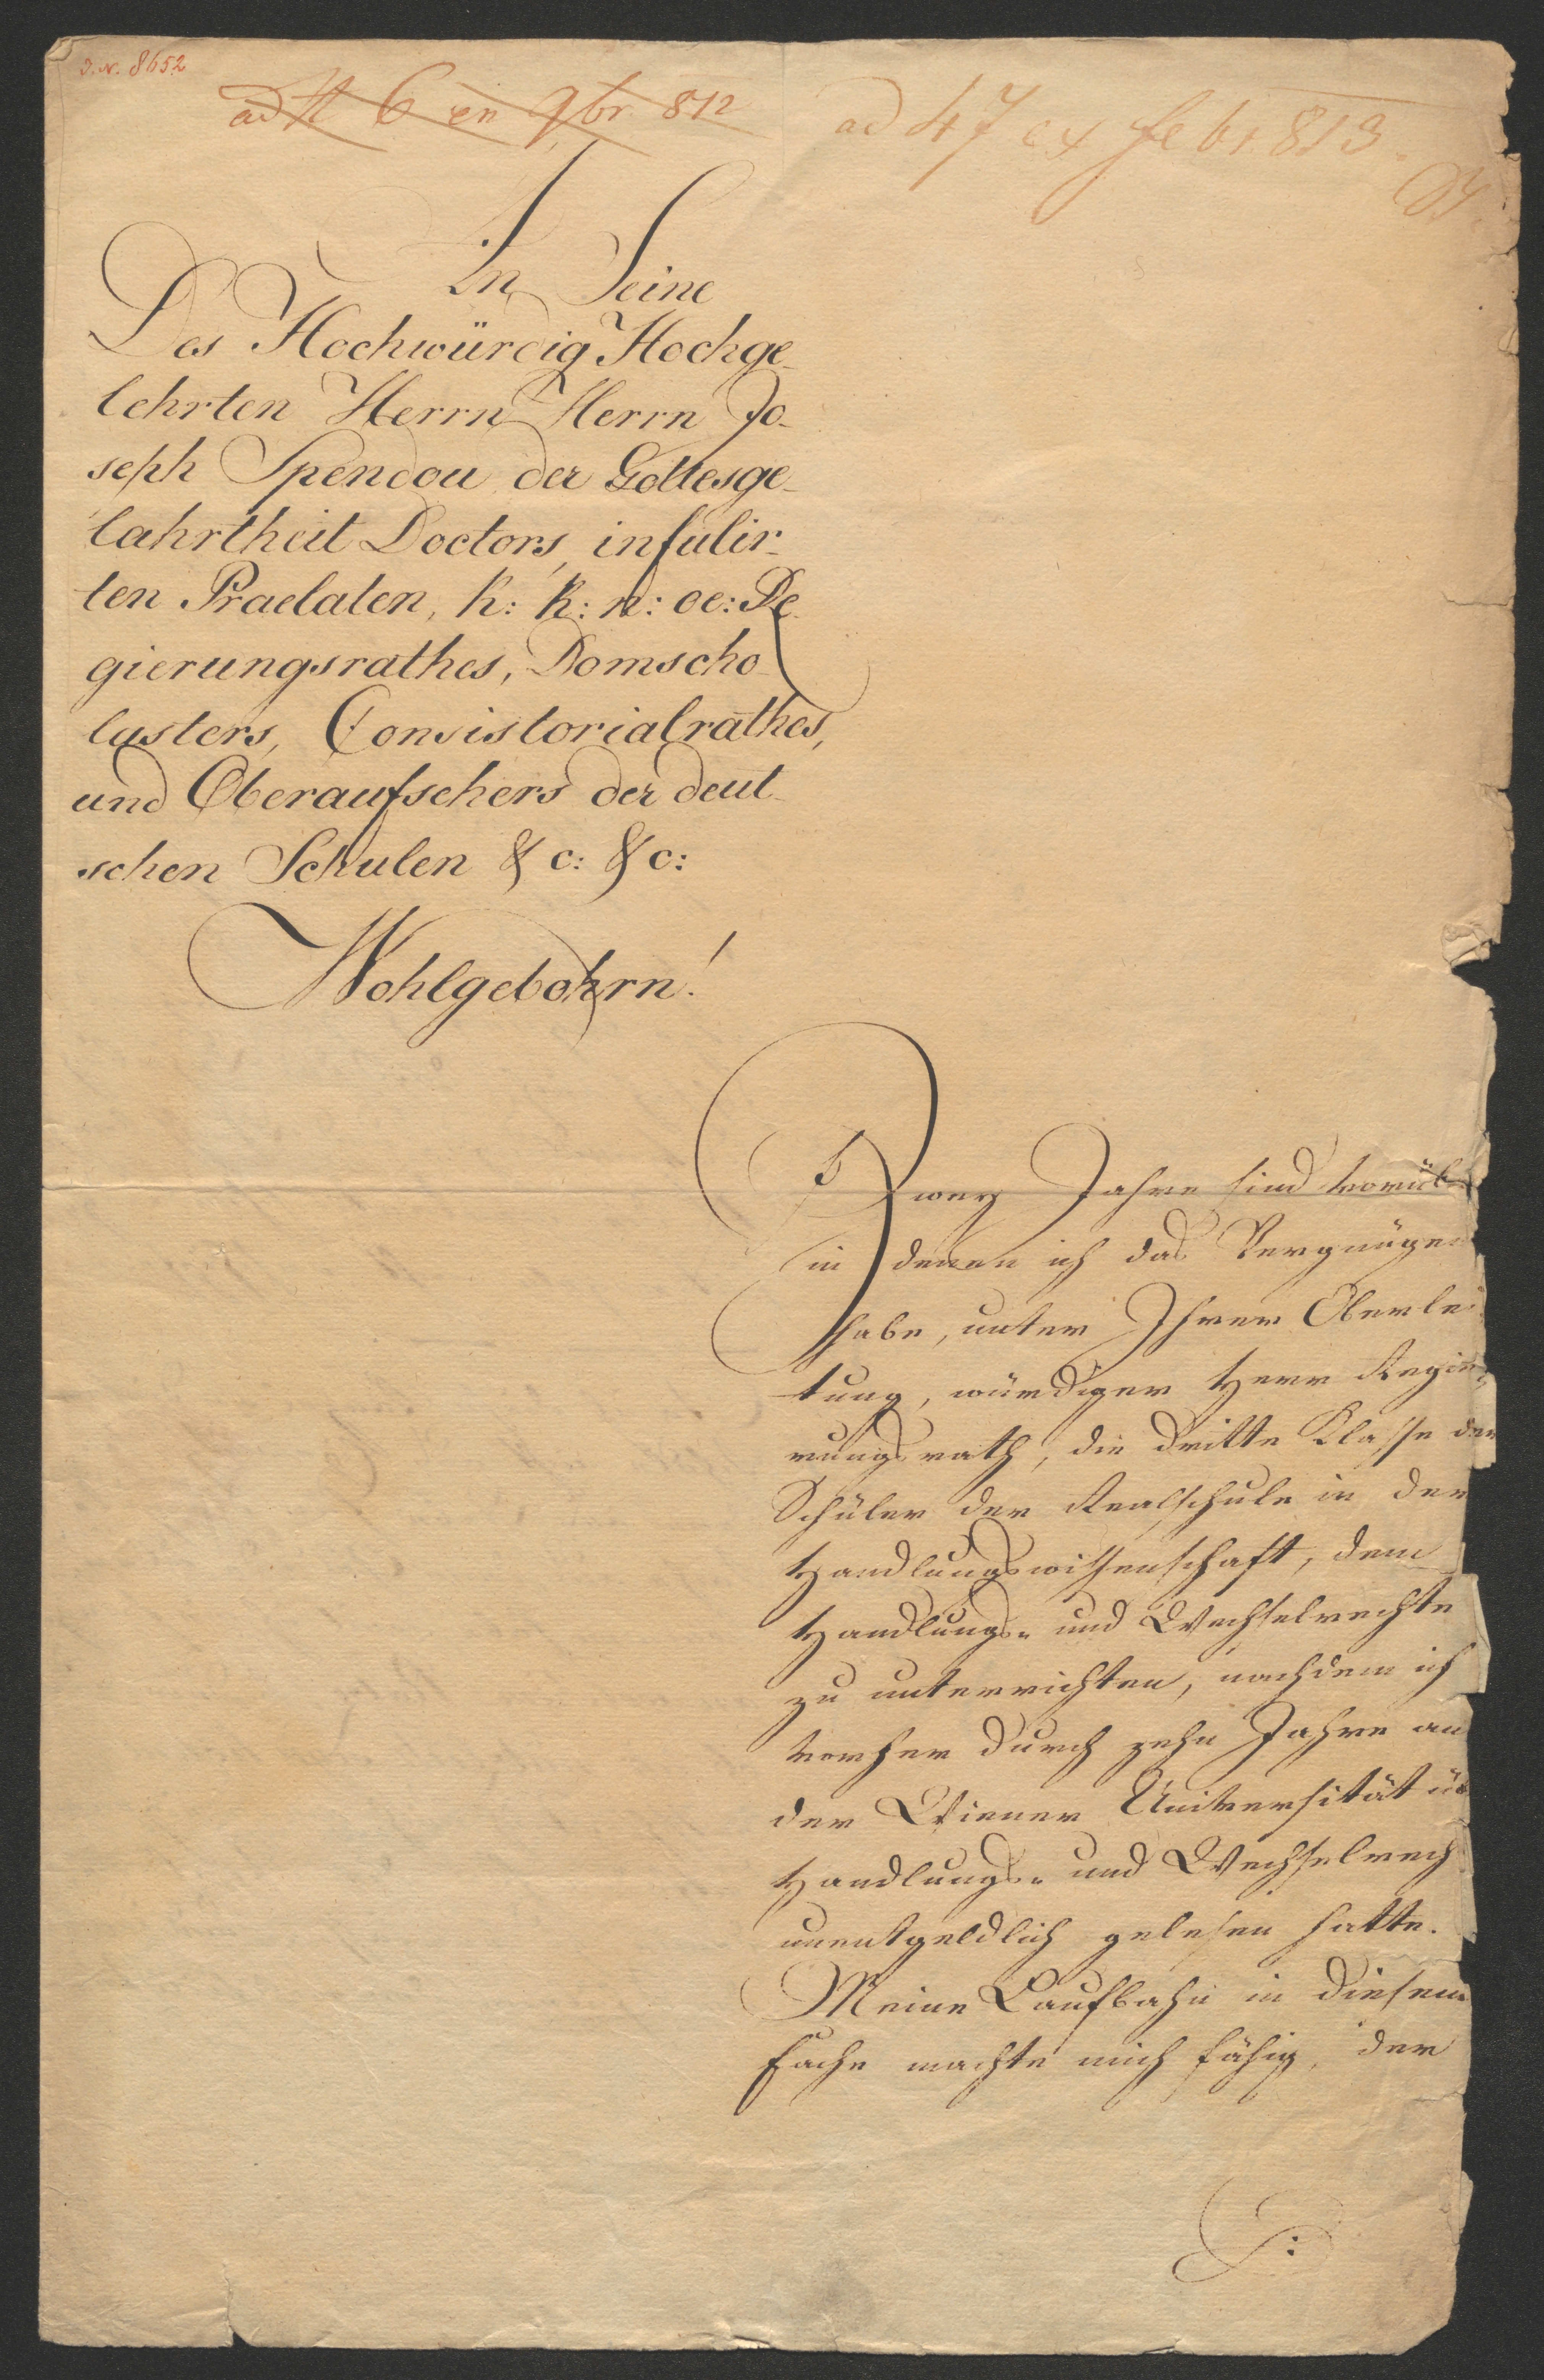 I. N. 8652
ad 6 en 9br 812
ad 47 ex febr 813.
In Seine
Des Hochwürdig Hochge-
lehrten Herrn Herrn Jo-
seph Spendou der Gottesge-
lahrtheit Doctors, infulir-
ten Praelaten, k: k: n: oe: Re-
gierungsrathes, Domscho-
lasters, Consistorialrathes,
und Oberaufsehers der deut-
schen Schulen & c: & c:
Wohlgebohrn!
Zwey Jahre sind vorüb
in denen ich das Vergnügen
habe, unter Ihrer Oberlei
tung, würdiger Herr Regie-
rungsrath, die dritte Klasse der
Schüler der Realschule in der
Handlungswissenschaft, dem
Handlungs- und Wechselrechte
zu unterrichten, nachdem ich
vorher durch zehn Jahre an
der Wiener Universität üb
Handlungs- und Wechselrech
unentgeldlich gelesen hatte.
Meine Laufbahn in diesem
Fache machte mich fähig, der